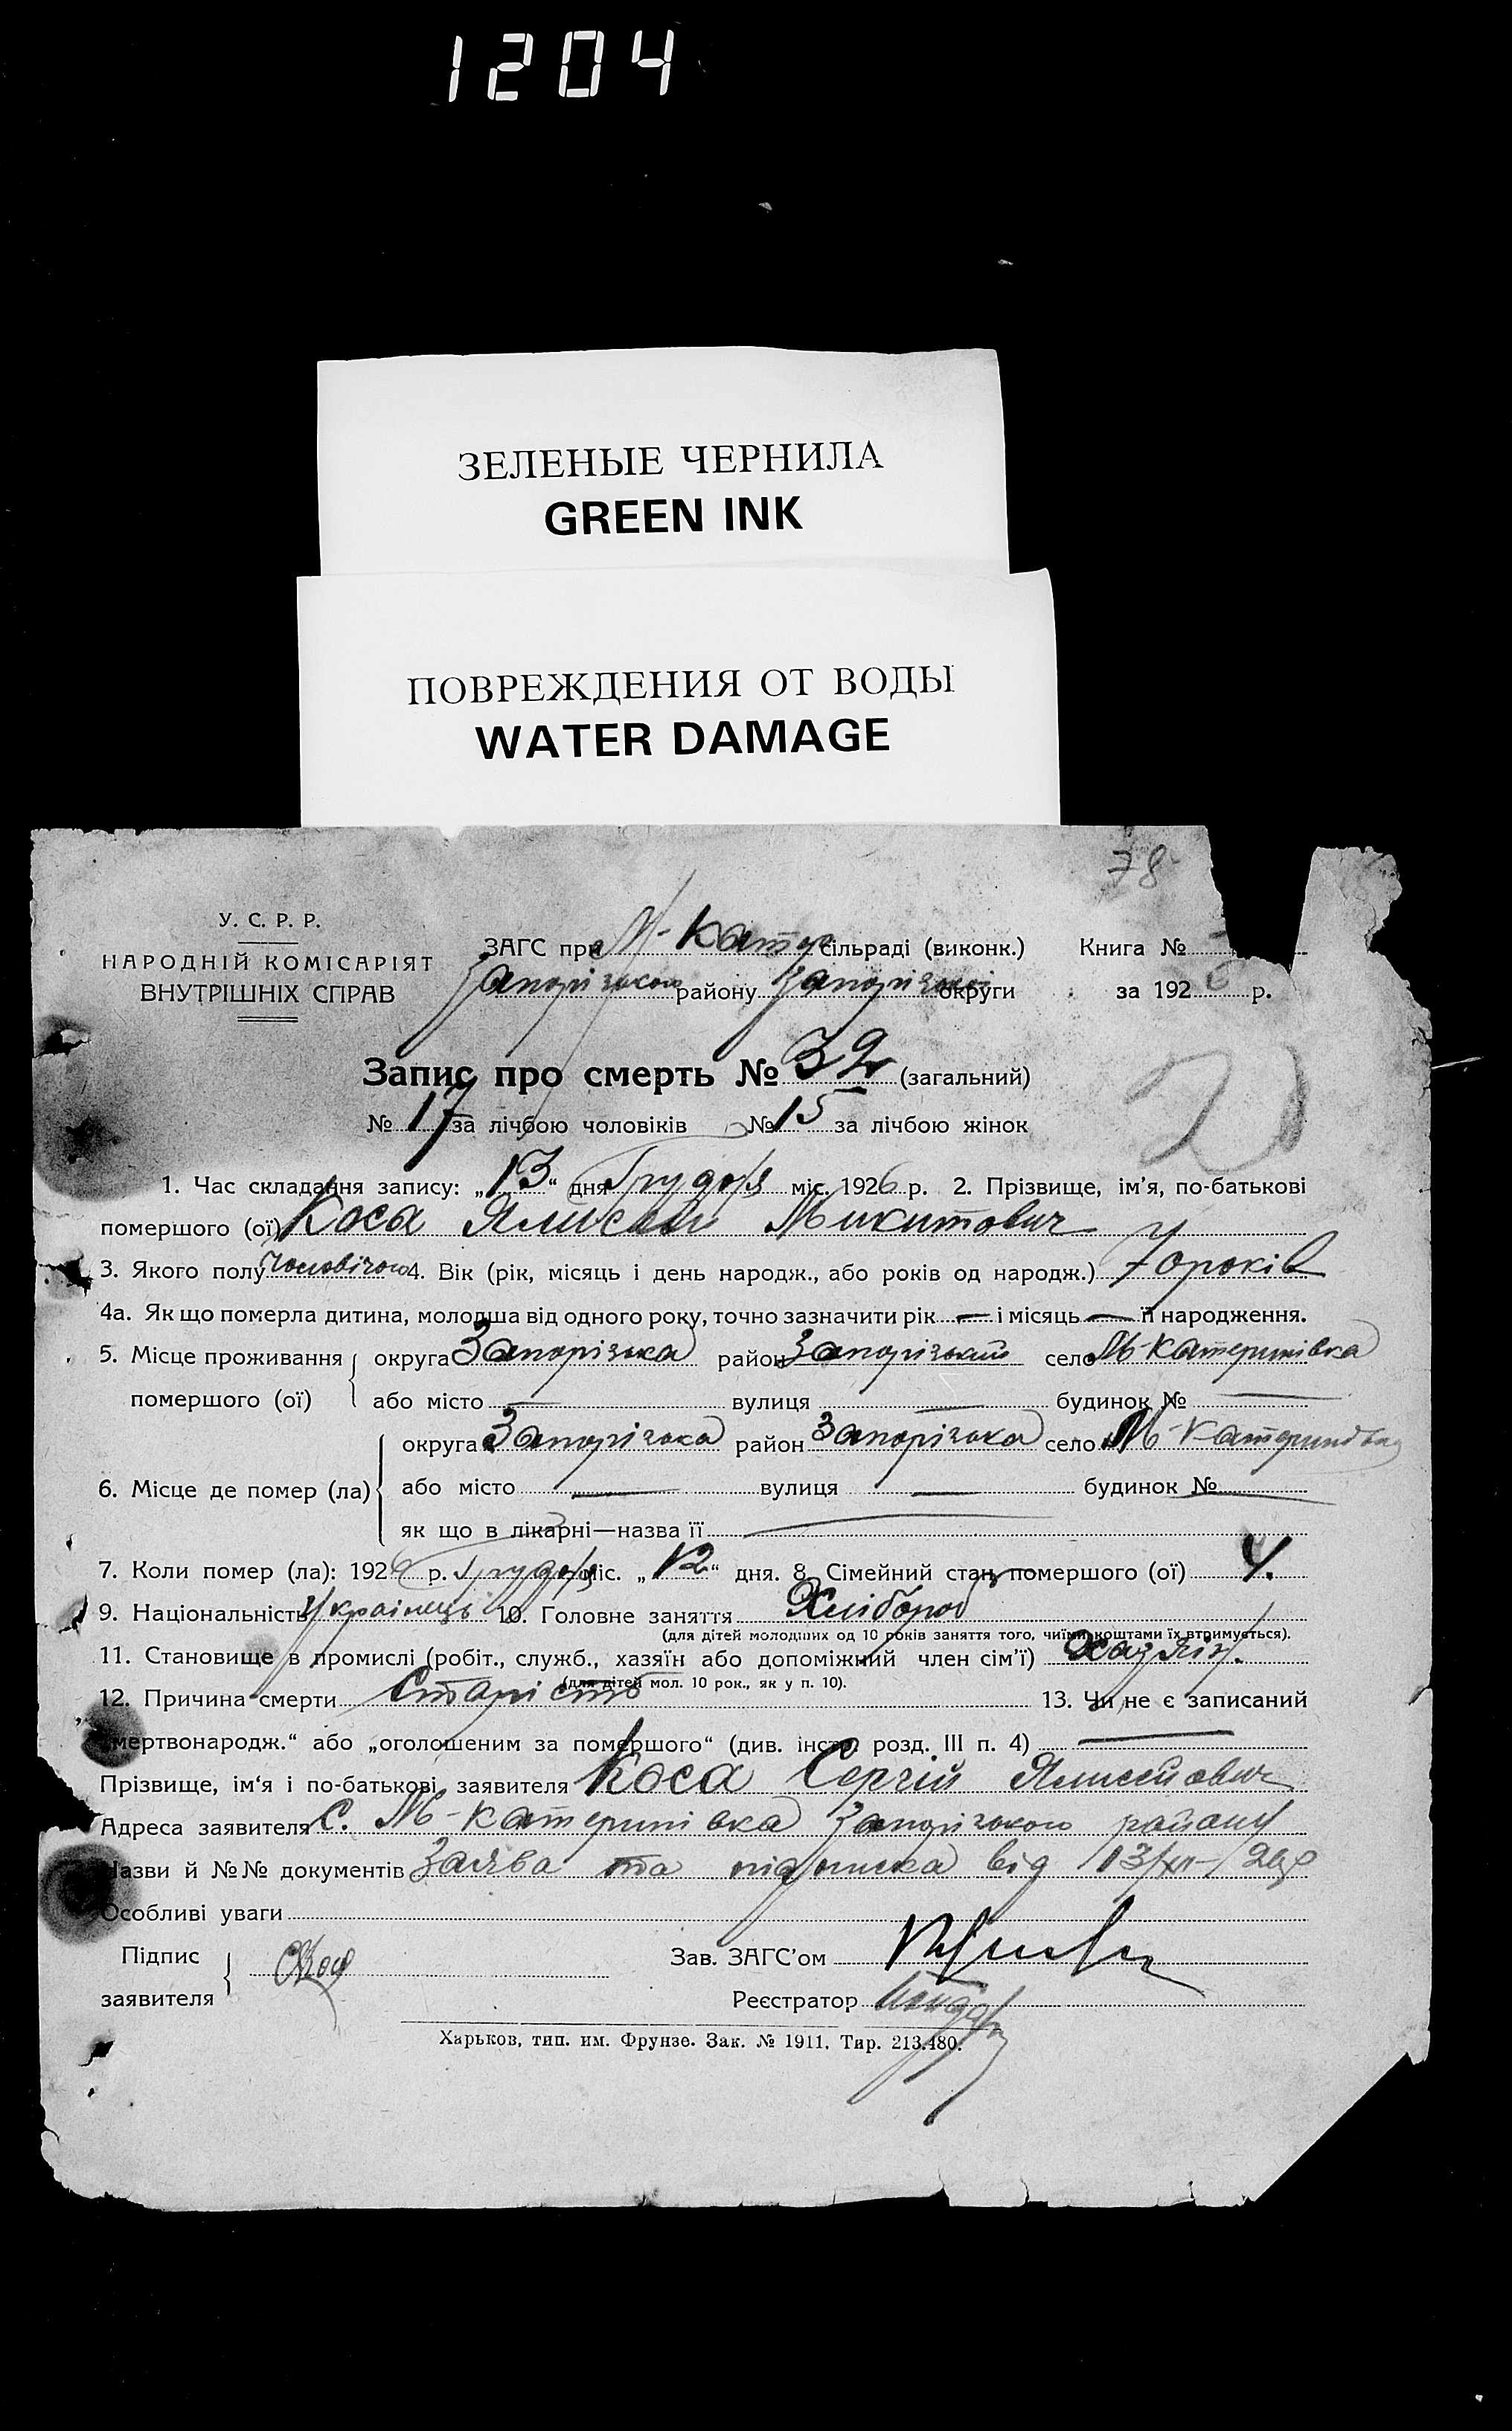 1204
ЗЕЛЕНЫЕ ЧЕРНИЛА
GREEN INK
ПОВРЕЖДЕНИЯ ОТ ВОДЫ
WATER DAMAGE
78
У. С. Р. Р.
НАРОДНІЙ КОМІСАРІЯТ
ВНУТРІШНІХ СПРАВ
ЗАГС при М-Катер сільраді (виконк.) Книга №
Запорізького району Запорізької округи за 1926 р.
Запис про смерть № 32 (загальний)
№ 17 за лічбою чоловіків № 15 за лічбою жінок
1. Час складання запису: „13“ дня Грудня міс. 1926 р. 2. Прізвище, ім’я, по-батькові
помершого (ої) Коса Ялисей Микитович
3. Якого полу Чоловічого 4. Вік (рік, місяць і день народж., або років од народж.) 70 років
4а. Як що померла дитина, молодша від одного року, точно зазначити рік — і місяць — її народження.
5. Місце проживання помершого (ої) округа Запорізька район Запорізький село М-Катеринівка
або місто — вулиця — будинок № —
6. Місце де помер (ла) округа Запорізька район Запорізька село М-Катеринівка
або місто — вулиця — будинок № —
як що в лікарні—назва її —
7. Коли помер (ла): 1926 р. Грудня міс. „12“ дня. 8. Сімейний стан помершого (ої) Ч.
9. Національність Українець 10. Головне заняття Хлібороб
(для дітей молодших од 10 років заняття того, чиїми коштами їх втримується).
11. Становище в промислі (робіт., служб., хазяїн або допоміжний член сім’ї) Хазяїн.
(для дітей мол. 10 рок., як у п. 10).
12. Причина смерти Старість 13. Чи не є записаний
„мертвонародж.“ або „оголошеним за помершого“ (див. інстр. розд. III п. 4) —
Прізвище, ім‘я і по-батькові заявителя Коса Сергій Ялисейович
Адреса заявителя с. М-Катеринівка Запорізького району
Назви й №№ документів Заява та підписка від 13/XII-26р
Особливі уваги
Підпис заявителя
Зав. ЗАГС’ом
Реєстратор
Харьков, тип. им. Фрунзе. Зак. № 1911. Тир. 213.480.